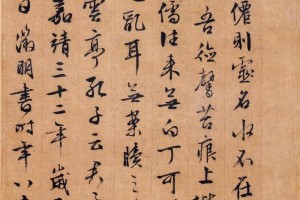 僊則靈名水不在
吾德馨苔痕上階
儒往來無白丁可
亂耳無案牘之
雲亭孔子云君子
嘉靖三十二年歲
日徵明書時年八